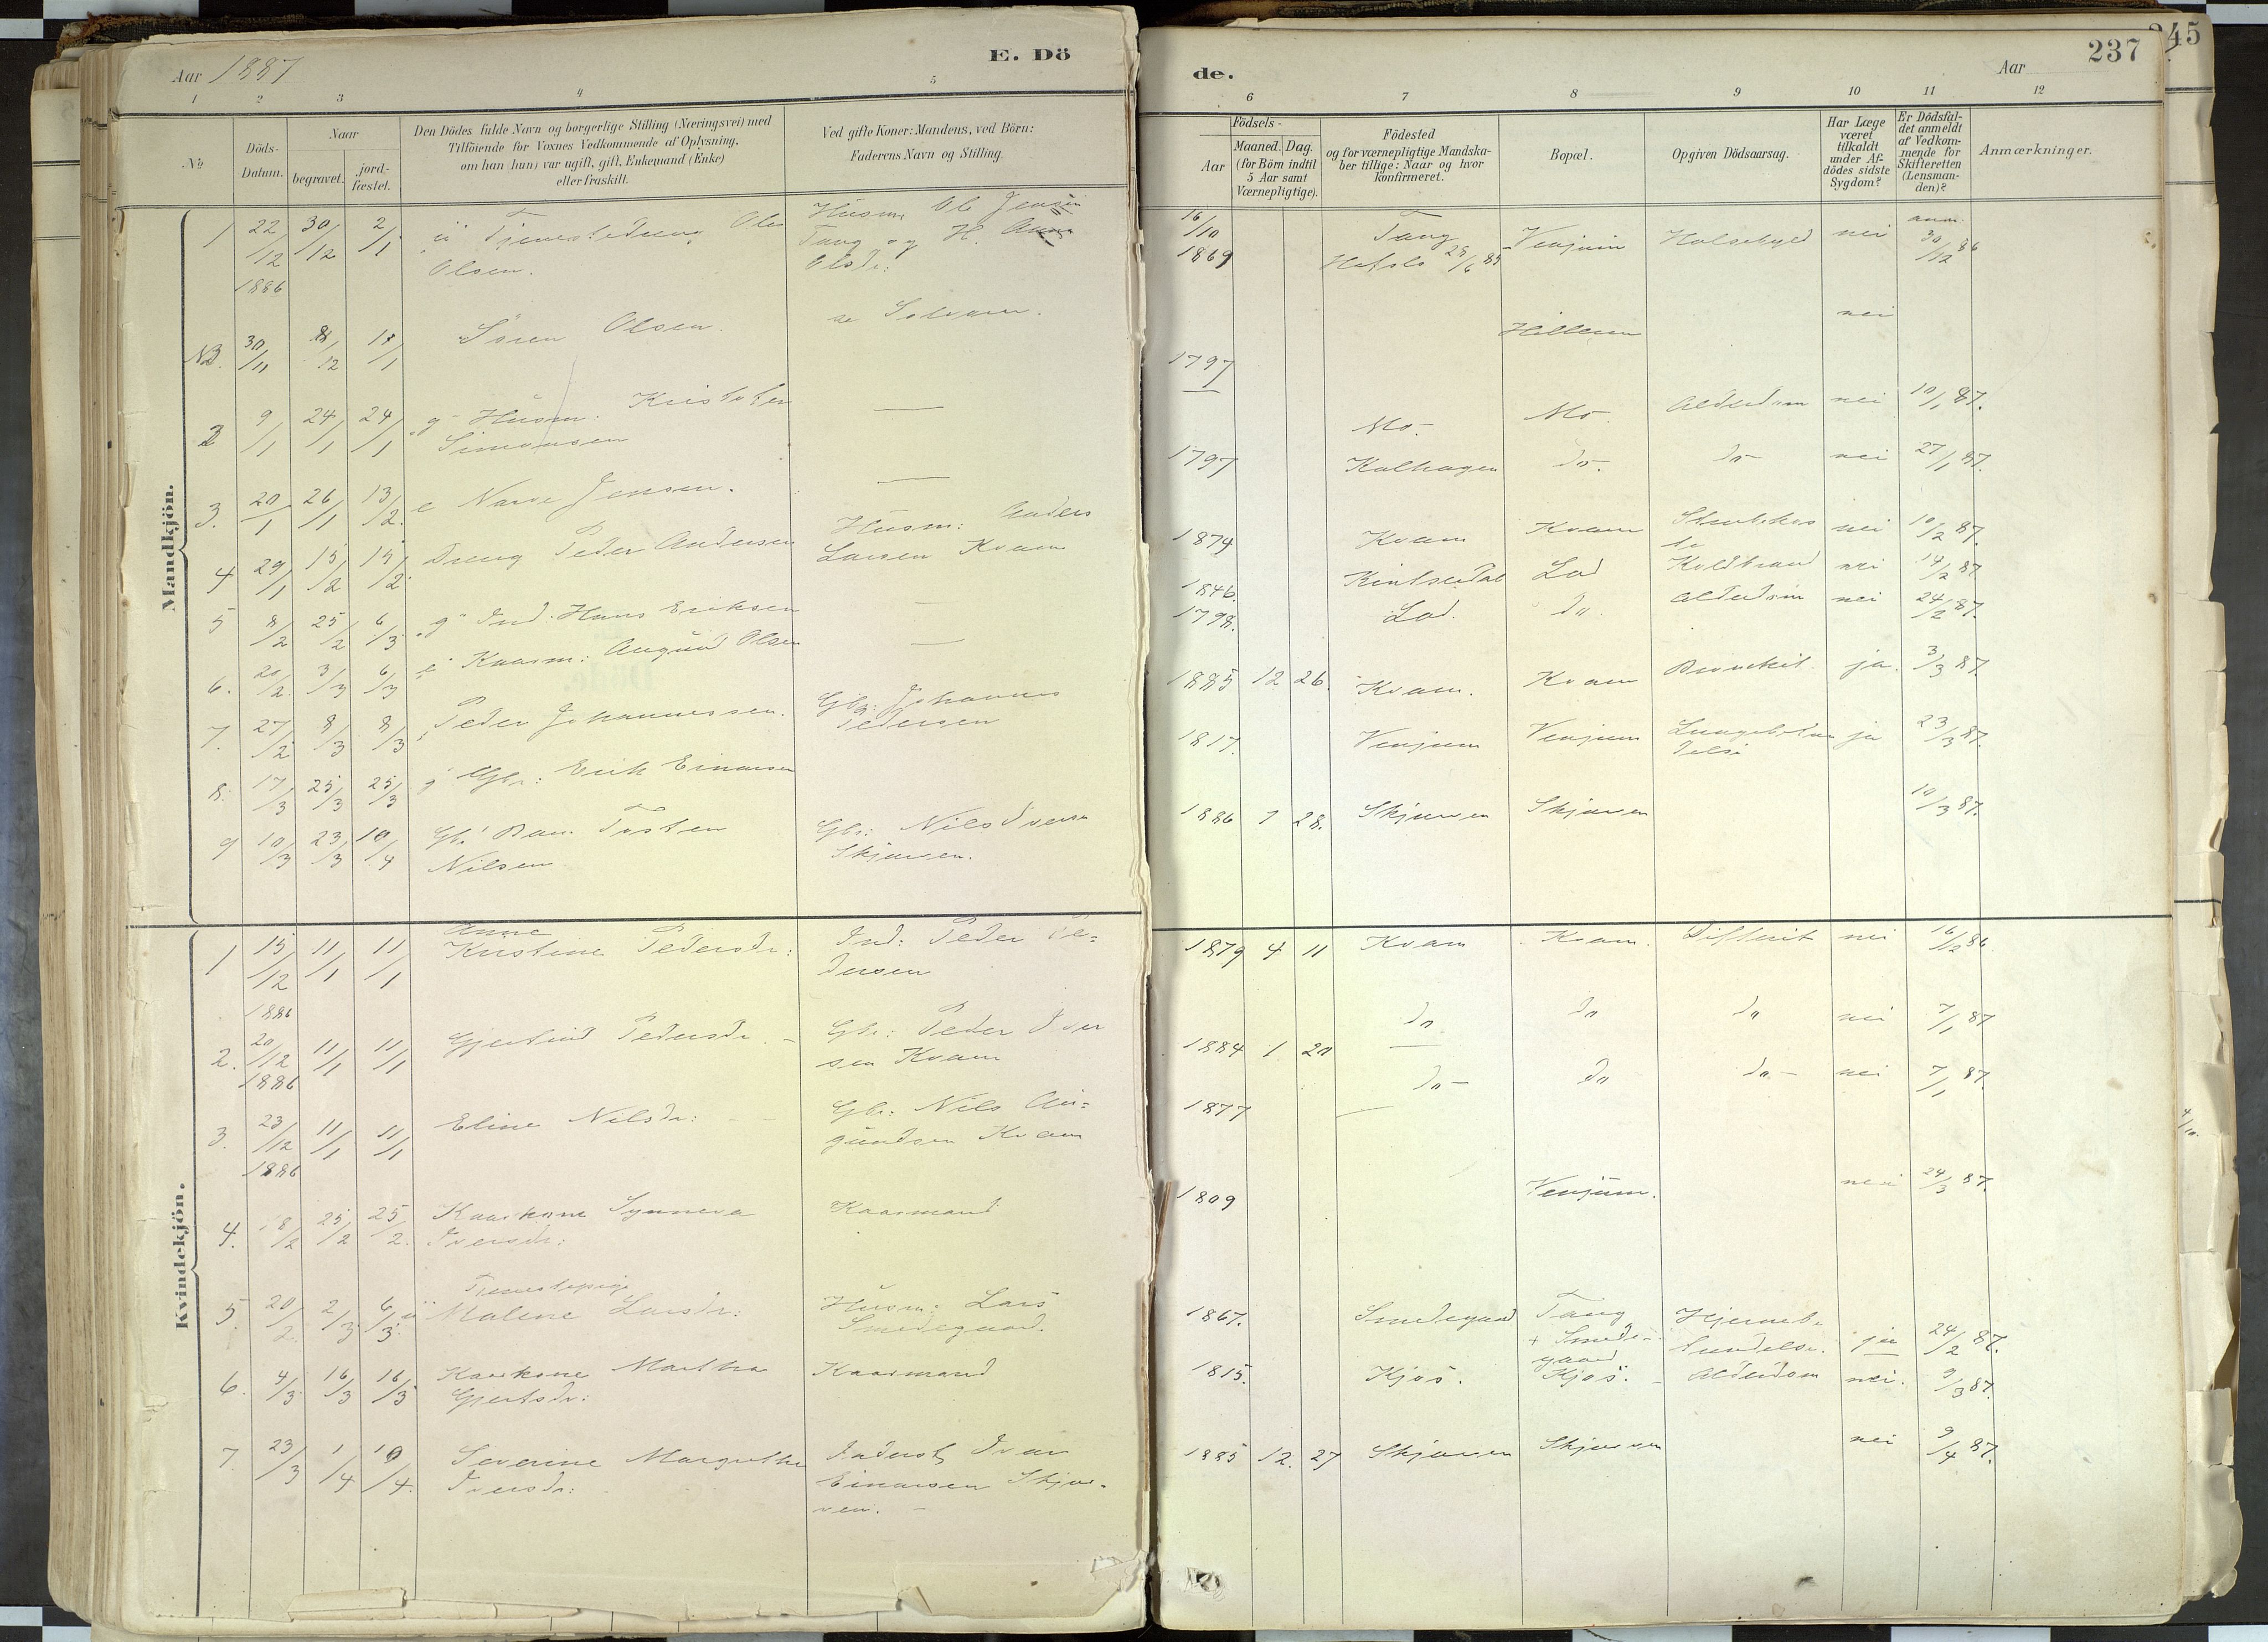 Aar 1887
E. Dö
1 2 3 4 5
No
Döds-Datum.
Naar
begravet.
jord-fæstet.
Den Dödes fulde Navn og borgerlige Stilling (Næringsvei) med
Tilföiende for Voxnes Vedkommende af Oplysning,
om han (hun) var ugift, gift, Enkemand (Enke)
eller fraskilt.
Ved gifte Koner: Mandens, ved Börn:
Faderens Navn og Stilling.
Mandkjön.
1 22/12 1886 30/12 2/1 ü Tjenestedreng Ole
Olsen.
Husm. Ole Jensen
Tang og H.
Olsdr:
NB. 30/11 8/12 18/1 Sören Olsen.
2 9/1 24/1 24/1 g Husm: Kristofer
Simonsen
3. 20/1 26/1 13/2 e Jensen.
4 29/1 15/2 15/2 Dreng Peder Andersen
Husm: Anders
Larsen Kvam
5 8/2 25/2 6/3 g Ind. Hans Eriksen
6. 20/2 3/3 6/3 Kaarm: Olsen
7. 27/2 8/3 8/3 Peder Johannessen.
Gbr: Johannes
Pedersen
8. 17/3 25/3 25/3 g Gbr: Erik Einarsen
9 10/3 23/3 10/4 Gb: Barn Tosten
Nilsen
Gbr: Nils Iversen
Skjerven.
Kvindekjön.
1 15/12 1886 11/1 11/1 Anne
Kristine Pedersdr:
Ind: Peder Pe=
dersen
2. 20/12 1886 11/1 11/1 Gjertrud Pedersdr. -
Gbr: Peder Iver
sen Kvam
3. 23/12 1886 11/1 11/1 Eline Nilsdr:
Gbr: Nils
Kvam
4. 18/2 25/2 25/2 Kaarkone Synneva
Iversdr:
Kaarmand
5. 20/2 2/3 6/3 ü Tjenestepige
Malene Larsdr:
Husm: Lars
Smedegaard.
6. 4/3 16/3 16/3 Kaarkone Martha
Gjertsdr:
Kaarmand
7. 23/3 1/4 10/4 Severine Margrethe
Iversdr:
Inderst Ivar
Einarsen Skjer-
ven. -
de.
Aar
237
245
6 7 8 9 10 11 12
Födsels-
Aar
Maaned. Dag.
(for Börn indtil
5 Aar samt
Værnepligtige).
Födested
og for værnepligtige Mandska-
ber tillige: Naar og hvor
konfirmeret.
Bopæl.
Opgiven Dödsaarsag.
Har Læge
været
tilkaldt
under Af-
dödes sidste
Sygdom?
Er Dödsfal-
det anmeldt
af Vedkom-
mende for
Skifteretten
(Lensman-
den)?
Anmærkninger.
16/10 1869 Tang
Hafslo 28/6 85 Venjum Halsebyld nei anm. 30/12 86
1797 Hillern nei
Mo. Mo. Alderdom nei 10/1 87.
1797 Kalhagen do. do nei 27/1 87.
1874 Kvam Kvam nei 10/2 87.
1846. Lad Koldbrand nei 14/2 87
1798. Lad. do. Alderdom nei 24/2 87.
1885 12 26. Kvam. Kvam Bronchit. ja. 3/3 87.
1817. Venjum Venjum Lungebetæn
delse ja 23/3 87.
1886 7 28. Skjerven Skjerven 10/3 87.
1879 4 11 Kvam Kvam. Difterit nei 16/2 86
1884 1 20 do do do nei 7/1 87
1877 do- do do- nei 7/1 87
1809 Venjum. nei 24/3 87.
1867. Smedegaard Tang
+ Smede-
gaard Hjernebe
tændelse. ja 24/2 87.
1815. Kjös. Kjös. Alderdom nei. 9/3 87.
1885 12. 27 Skjerven Skjerven nei 9/4 87.
4/10.